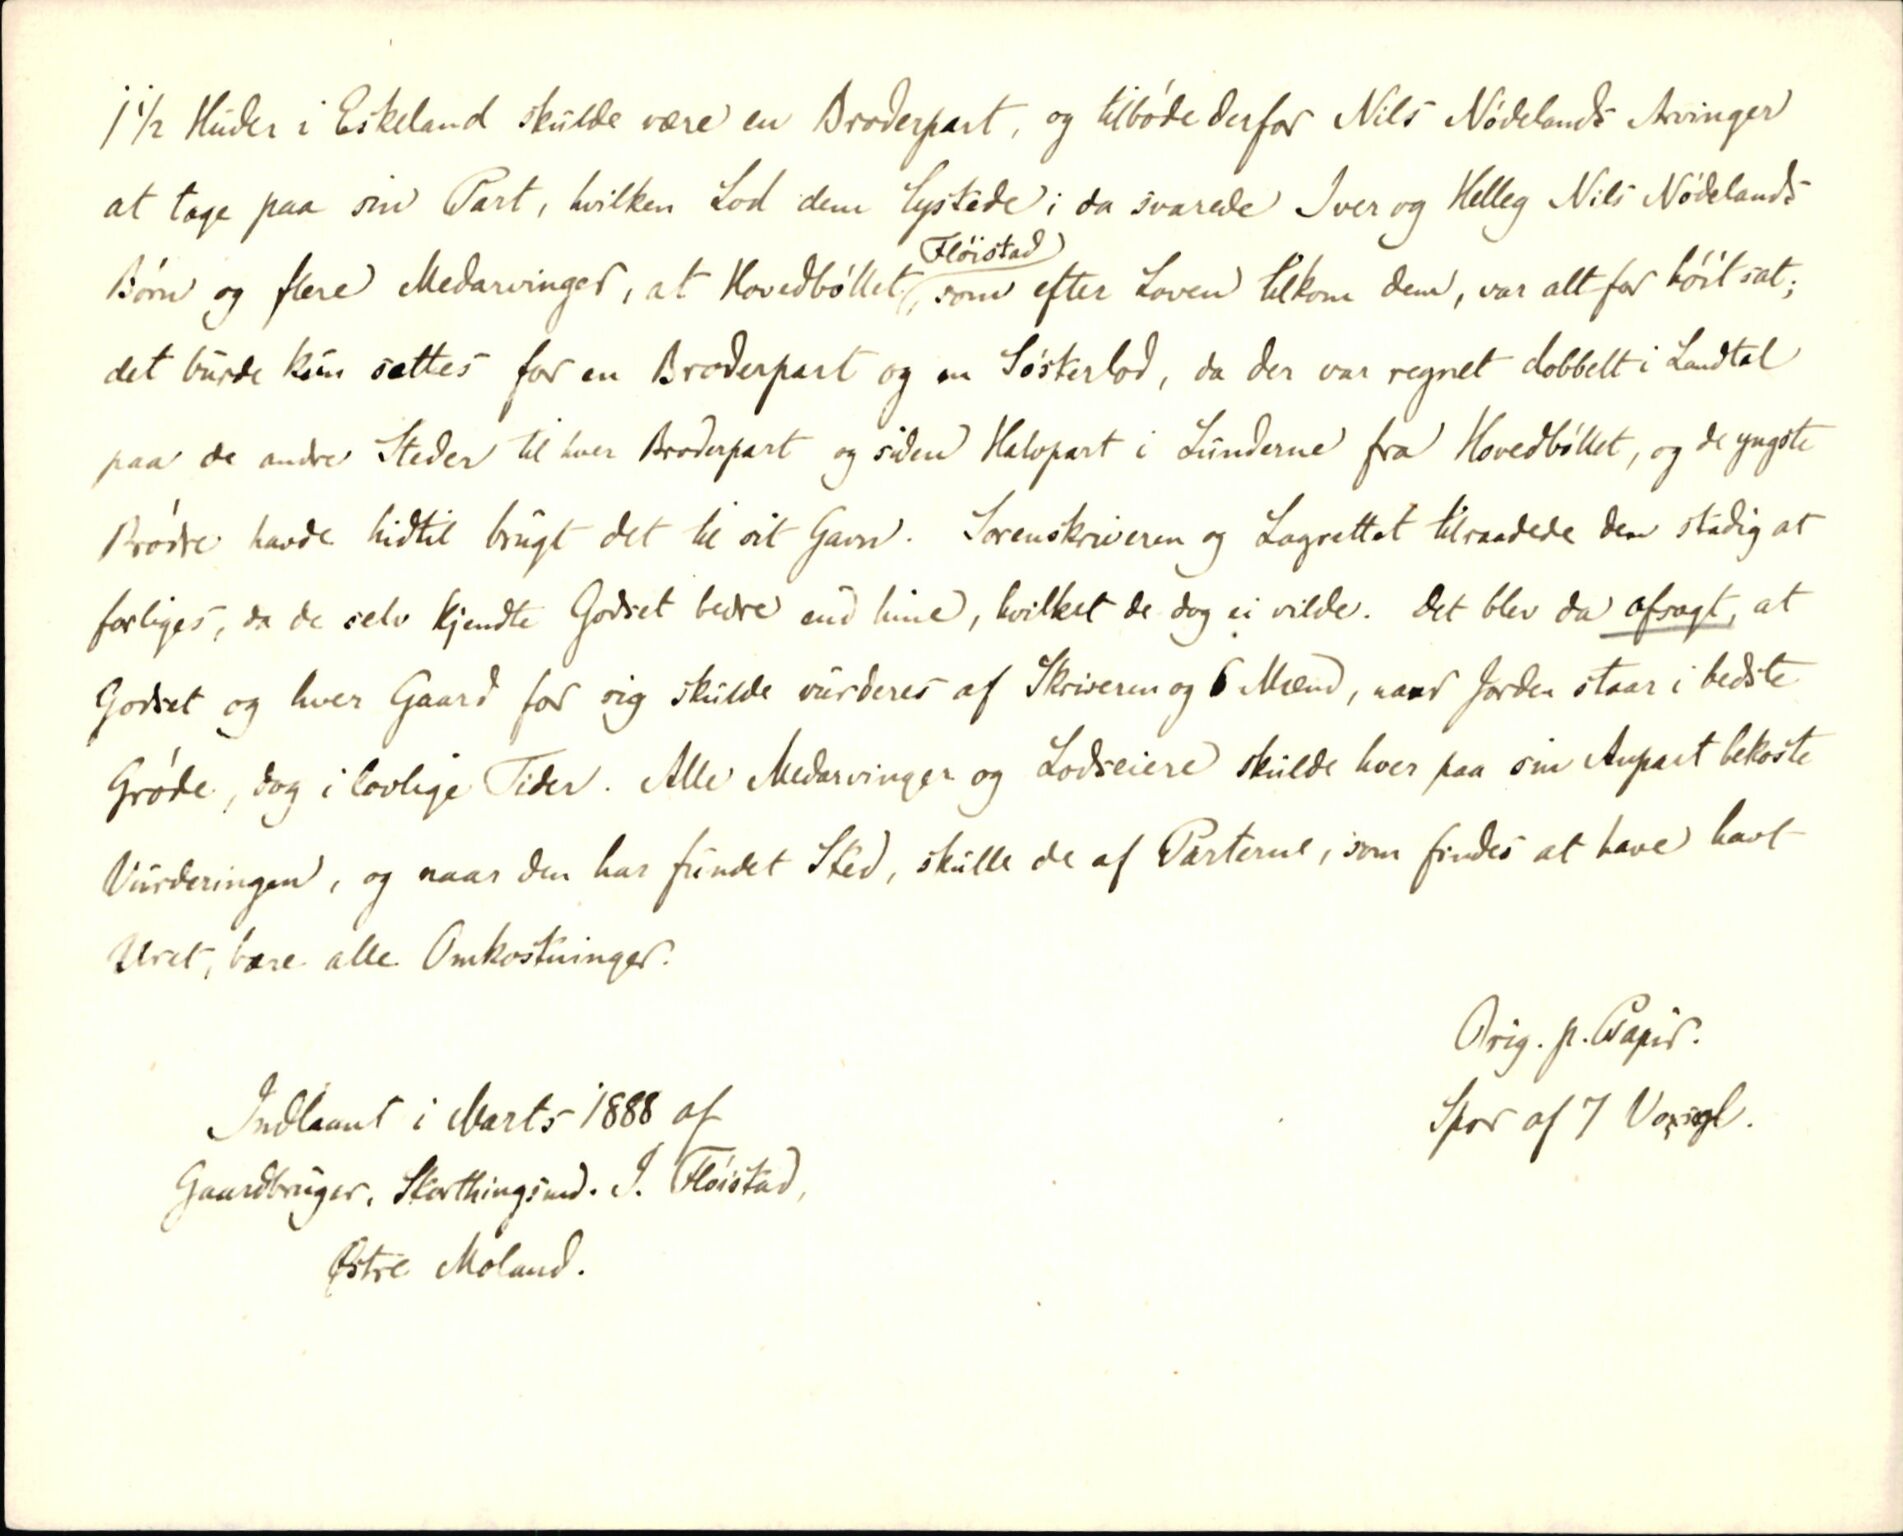 1 1/2 Huder i Eskeland skulde være en Broderpart, og tilbøde derfor Nils Nødelands Arvinger
at tage paa sin Part, hvilken Lod dem lystede; da svarede Iver og Helleg Nils Nødelands
Børn og flere Medarvinger, at Hovedbøllet, Fløistad, som efter Loven tilkom dem, var alt for høit sat;
det burde kun sættes for en Broderpart og en Søsterlod, da der var regnet dobbelt i Landtal
paa de andre Steder til hver Broderpart og siden Halvpart i Lunderne fra Hovedbøllet, og de yngste
Brødre havde hidtil brugt det til sit Gavn. Sorenskriveren og Lagrettet tilraadede dem stadig at
forliges, da de selv kjendte Godset bedre end hine, hvilket de dog ei vilde. Det blev da afsagt, at
Godset og hver Gaard for sig skulde vurderes af Skriveren og 6 Mænd, naar Jorden staar i bedste
Grøde, dog i lovlige Tider. Alle Medarvinger og Lodseiere skulde hver paa sin Anpart bekoste
Vurderingen, og naar den har fundet Sted, skulle de af Parterne, som findes at have havt
Uret, bære alle Omkostninger.
Orig. p. Papir.
Spor af 7 Voxsegl.
Indlaant i Marts 1888 af
Gaardbruger, Storthingsmd. J. Fløistad,
Østre Moland.